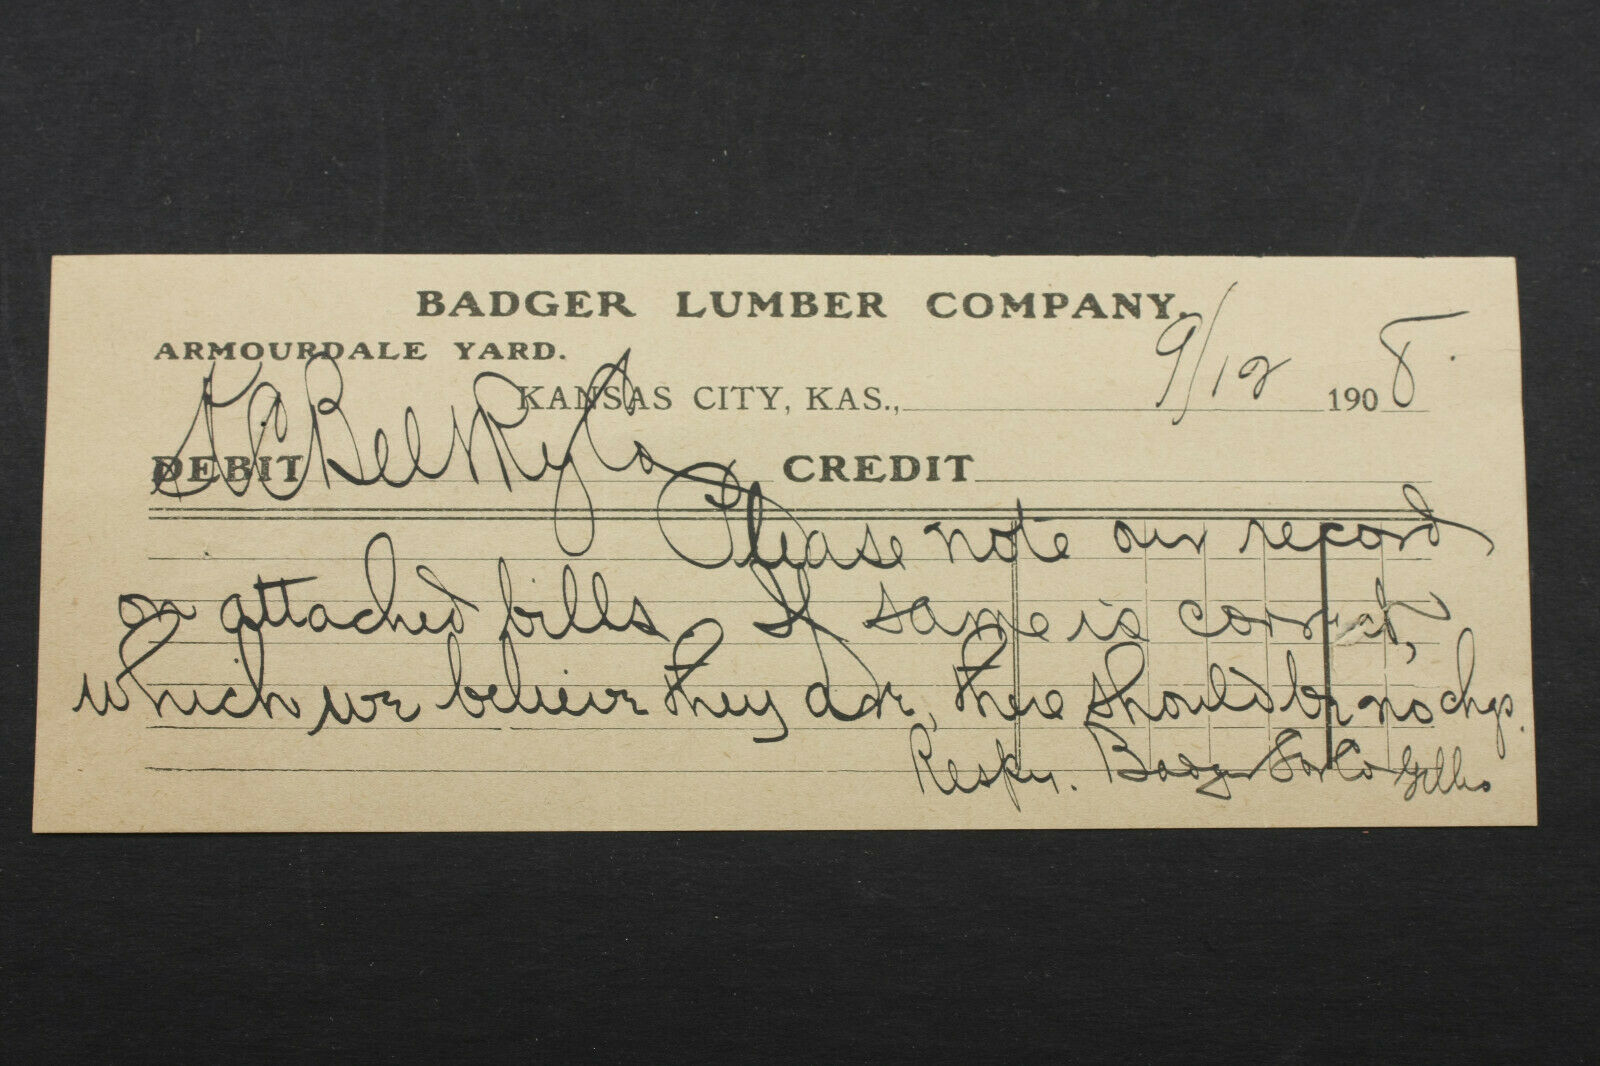 BADGER LUMBER COMPANY.
ARMOURDALE YARD.
KANSAS CITY, KAS., 9/12 1908.
DEBIT K C Belt Ry Co CREDIT
Please note our record
on attached bills. If same is correct,
which we believe they are, there should be no chgs.
Respy. Badger Lbr Co